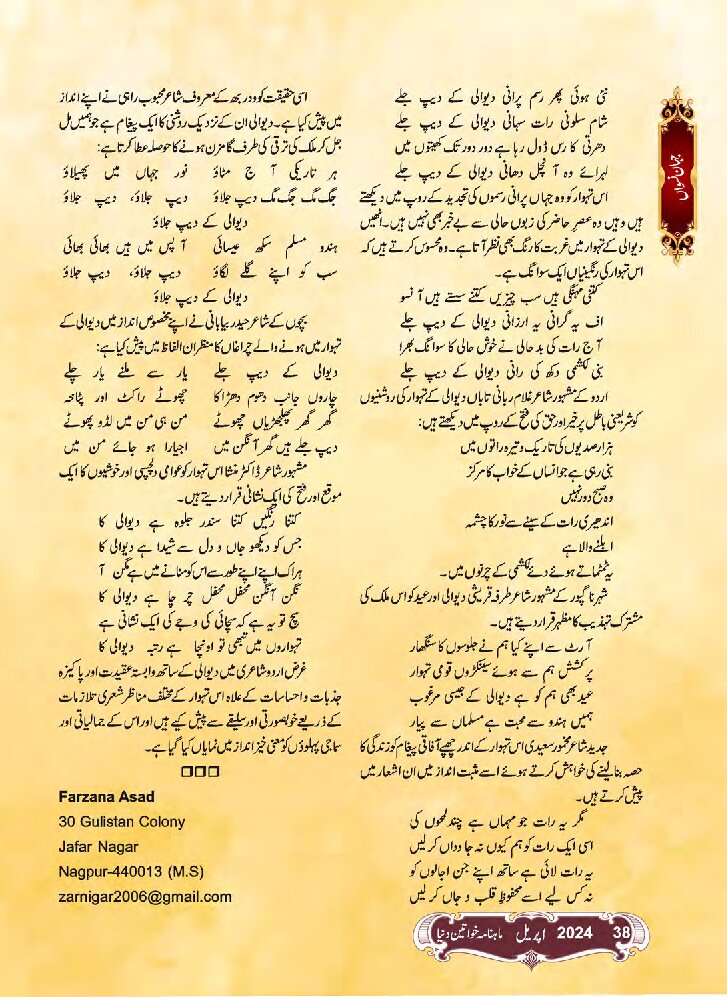 نئی ہوئی پھر رسم پرانی دیوالی کے دیپ جلے
شام سلونی رات سہانی دیوالی کے دیپ جلے
دھرتی کا رس ڈول رہا ہے دور دور تک کھیتوں میں
لہرائے وہ آنچل دھانی دیوالی کے دیپ جلے
اس تہوار کو وہ جہاں پرانی رسموں کی تجدید کے روپ میں دیکھتے
ہیں وہیں وہ عصر حاضر کی زبوں حالی سے بے خبر بھی نہیں ہیں۔ انھیں
دیوالی کے تہوار میں غربت کا رنگ بھی نظر آتا ہے۔ وہ محسوس کرتے ہیں کہ
اس تہوار کی رنگینیاں ایک سوانگ ہے۔
کتنی مہنگی ہیں سب چیزیں کتنے سستے ہیں آنسو
اف یہ گرانی یہ ارزانی دیوالی کے دیپ جلے
آج رات کی بدحالی نے خوش حالی کا سوانگ بھرا
بنی لکشمی دکھ کی رانی دیوالی کے دیپ جلے
اردو کے مشہور شاعر غلام ربانی تاباں دیوالی کے تہوار کی روشنیوں
کو شر یعنی باطل پر خیر اور حق کی فتح کے روپ میں دیکھتے ہیں:
ہزار صدیوں کی تاریک و تیرہ راتوں میں
بنی رہی ہے جو انساں کے خواب کا مرکز
وہ صبح دور نہیں
اندھیری رات کے سینے سے نور کا چشمہ
ابلنے والا ہے
یہ ٹمٹماتے ہوئے دئے لکشمی کے چرنوں میں۔
شہر ناگپور کے مشہور شاعر طرفہ قریشی دیوالی اور عید کو اس ملک کی
مشترک تہذیب کا مظہر قرار دیتے ہیں۔
آرٹ سے اپنے کیا ہم نے جلوسوں کا سنگھار
پرکشش ہم سے ہوئے سینکڑوں قومی تہوار
عید بھی ہم کو ہے دیوالی کے جیسی مرغوب
ہمیں ہندو سے محبت ہے مسلماں سے پیار
جدید شاعر مخمور سعیدی اس تہوار کے اندر چھپے آفاقی پیغام کو زندگی کا
حصہ بنا لینے کی خواہش کرتے ہوئے اسے مثبت انداز میں ان اشعار میں
پیش کرتے ہیں۔
مگر یہ رات جو مہماں ہے چند لمحوں کی
اسی ایک رات کو ہم کیوں نہ جاوداں کر لیں
یہ رات لائی ہے ساتھ اپنے جن اجالوں کو
نہ کس لیے اسے محفوظ قلب و جاں کر لیں
اسی حقیقت کو ودربھ کے معروف شاعر محبوب راہی نے اپنے انداز
میں پیش کیا ہے۔ دیوالی ان کے نزدیک روشنی کا ایک پیغام ہے جو ہمیں مل
جل کر ملک کی ترقی کی طرف گامزن ہونے کا حوصلہ عطا کرتا ہے:
ہر تاریکی آج مٹاؤ نور جہاں میں پھیلاؤ
جگ مگ جگ مگ دیپ جلاؤ دیپ جلاؤ، دیپ جلاؤ
دیوالی کے دیپ جلاؤ
ہندو مسلم سکھ عیسائی آپس میں ہیں بھائی بھائی
سب کو اپنے گلے لگاؤ دیپ جلاؤ، دیپ جلاؤ
دیوالی کے دیپ جلاؤ
بچوں کے شاعر حیدر بیابانی نے اپنے مخصوص انداز میں دیوالی کے
تہوار میں ہونے والے چراغاں کا منظر ان الفاظ میں پیش کیا ہے:
دیوالی کے دیپ جلے یار سے ملنے یار چلے
چاروں جانب دھوم دھڑاکا چھوٹے راکٹ اور پٹاخہ
گھر گھر پھلجھڑیاں چھوٹے من ہی من میں لڈو پھوٹے
دیپ جلے ہیں گھر آنگن میں اجیارا ہو جائے من میں
مشہور شاعر ڈاکٹر منشا اس تہوار کو عوامی دلچسپی اور خوشیوں کا ایک
موقع اور فتح کی ایک نشانی قرار دیتے ہیں۔
کتنا رنگیں کتنا سندر جلوہ ہے دیوالی کا
جس کو دیکھو جاں و دل سے شیدا ہے دیوالی کا
ہر اک اپنے اپنے طور سے اس کو منانے میں ہے مگن آ
نگن آنگن محفل محفل چرچا ہے دیوالی کا
سچ تو یہ ہے کہ سچائی کی وجے کی ایک نشانی ہے
تہواروں میں تبھی تو اونچا ہے رتبہ دیوالی کا
غرض اردو شاعری میں دیوالی کے ساتھ وابستہ عقیدت اور پاکیزہ
جذبات و احساسات کے علاوہ اس تہوار کے مختلف مناظر شعری تلازمات
کے ذریعے خوبصورتی اور سلیقے سے پیش کیے ہیں اور اس کے جمالیاتی اور
سماجی پہلوؤں کو معنی خیز انداز میں نمایاں کیا گیا ہے۔
Farzana Asad
30 Gulistan Colony
Jafar Nagar
Nagpur-440013 (M.S)
zarnigar2006@gmail.com
جہان نسواں
ماہنامہ خواتین دنیا اپریل 2024 38